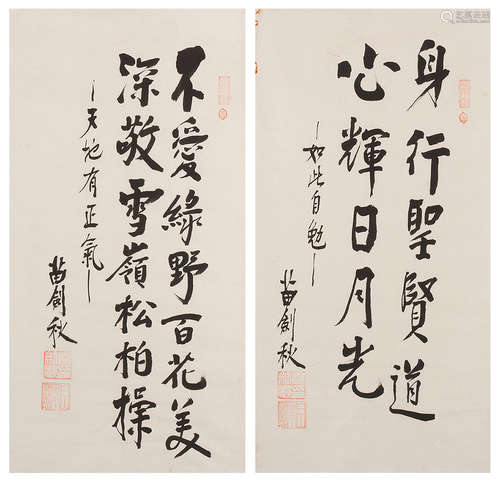 身行聖賢道
心輝日月光
—如此自勉—
苗劍秋
不愛綠野百花美
深敬雪嶺松柏操
—天地有正氣—
苗劍秋